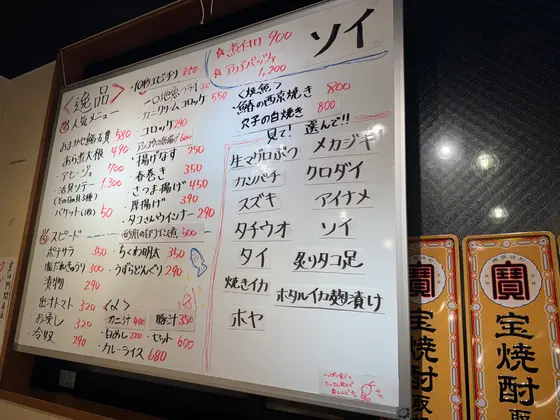 <逸品>
人気メニュー
おまかせ鮨五貫 580
あら煮大根 490
アヒージョ 700
活貝ソテー 1,300
(その日の貝3種)
バケット(1枚) 50
スピード
ポテサラ 350
塩だれきゅうり 300
漬物 290
出汁トマト 320
お浸し 320
冷奴 290
・10秒エビチリ 850
・一口地魚フライ
・カニクリームコロッケ 550
・コロッケ 290
・揚げなす 250
・春巻き 350
・さつま揚げ 450
・厚揚げ 390
・タコさんウインナー 290
500
・ちくわ明太 350
・うずらどんぐり 290
<〆>
・カニ汁 400
・豚汁 350
・白めし 220
・セット 600
・カレーライス 680
☆煮付け 900
☆アクアパッツァ 1,200
ソイ
<焼魚>
・鰆の西京焼き 800
穴子の白焼き 800
見て!選んで!!
生マグロぶつ
メカジキ
カンパチ
クロダイ
スズキ
アイナメ
タチウオ
ソイ
タイ
炙りタコ足
焼きイカ
ホタルイカ麹漬け
ホヤ
寶
宝焼酎
寶
宝焼酎